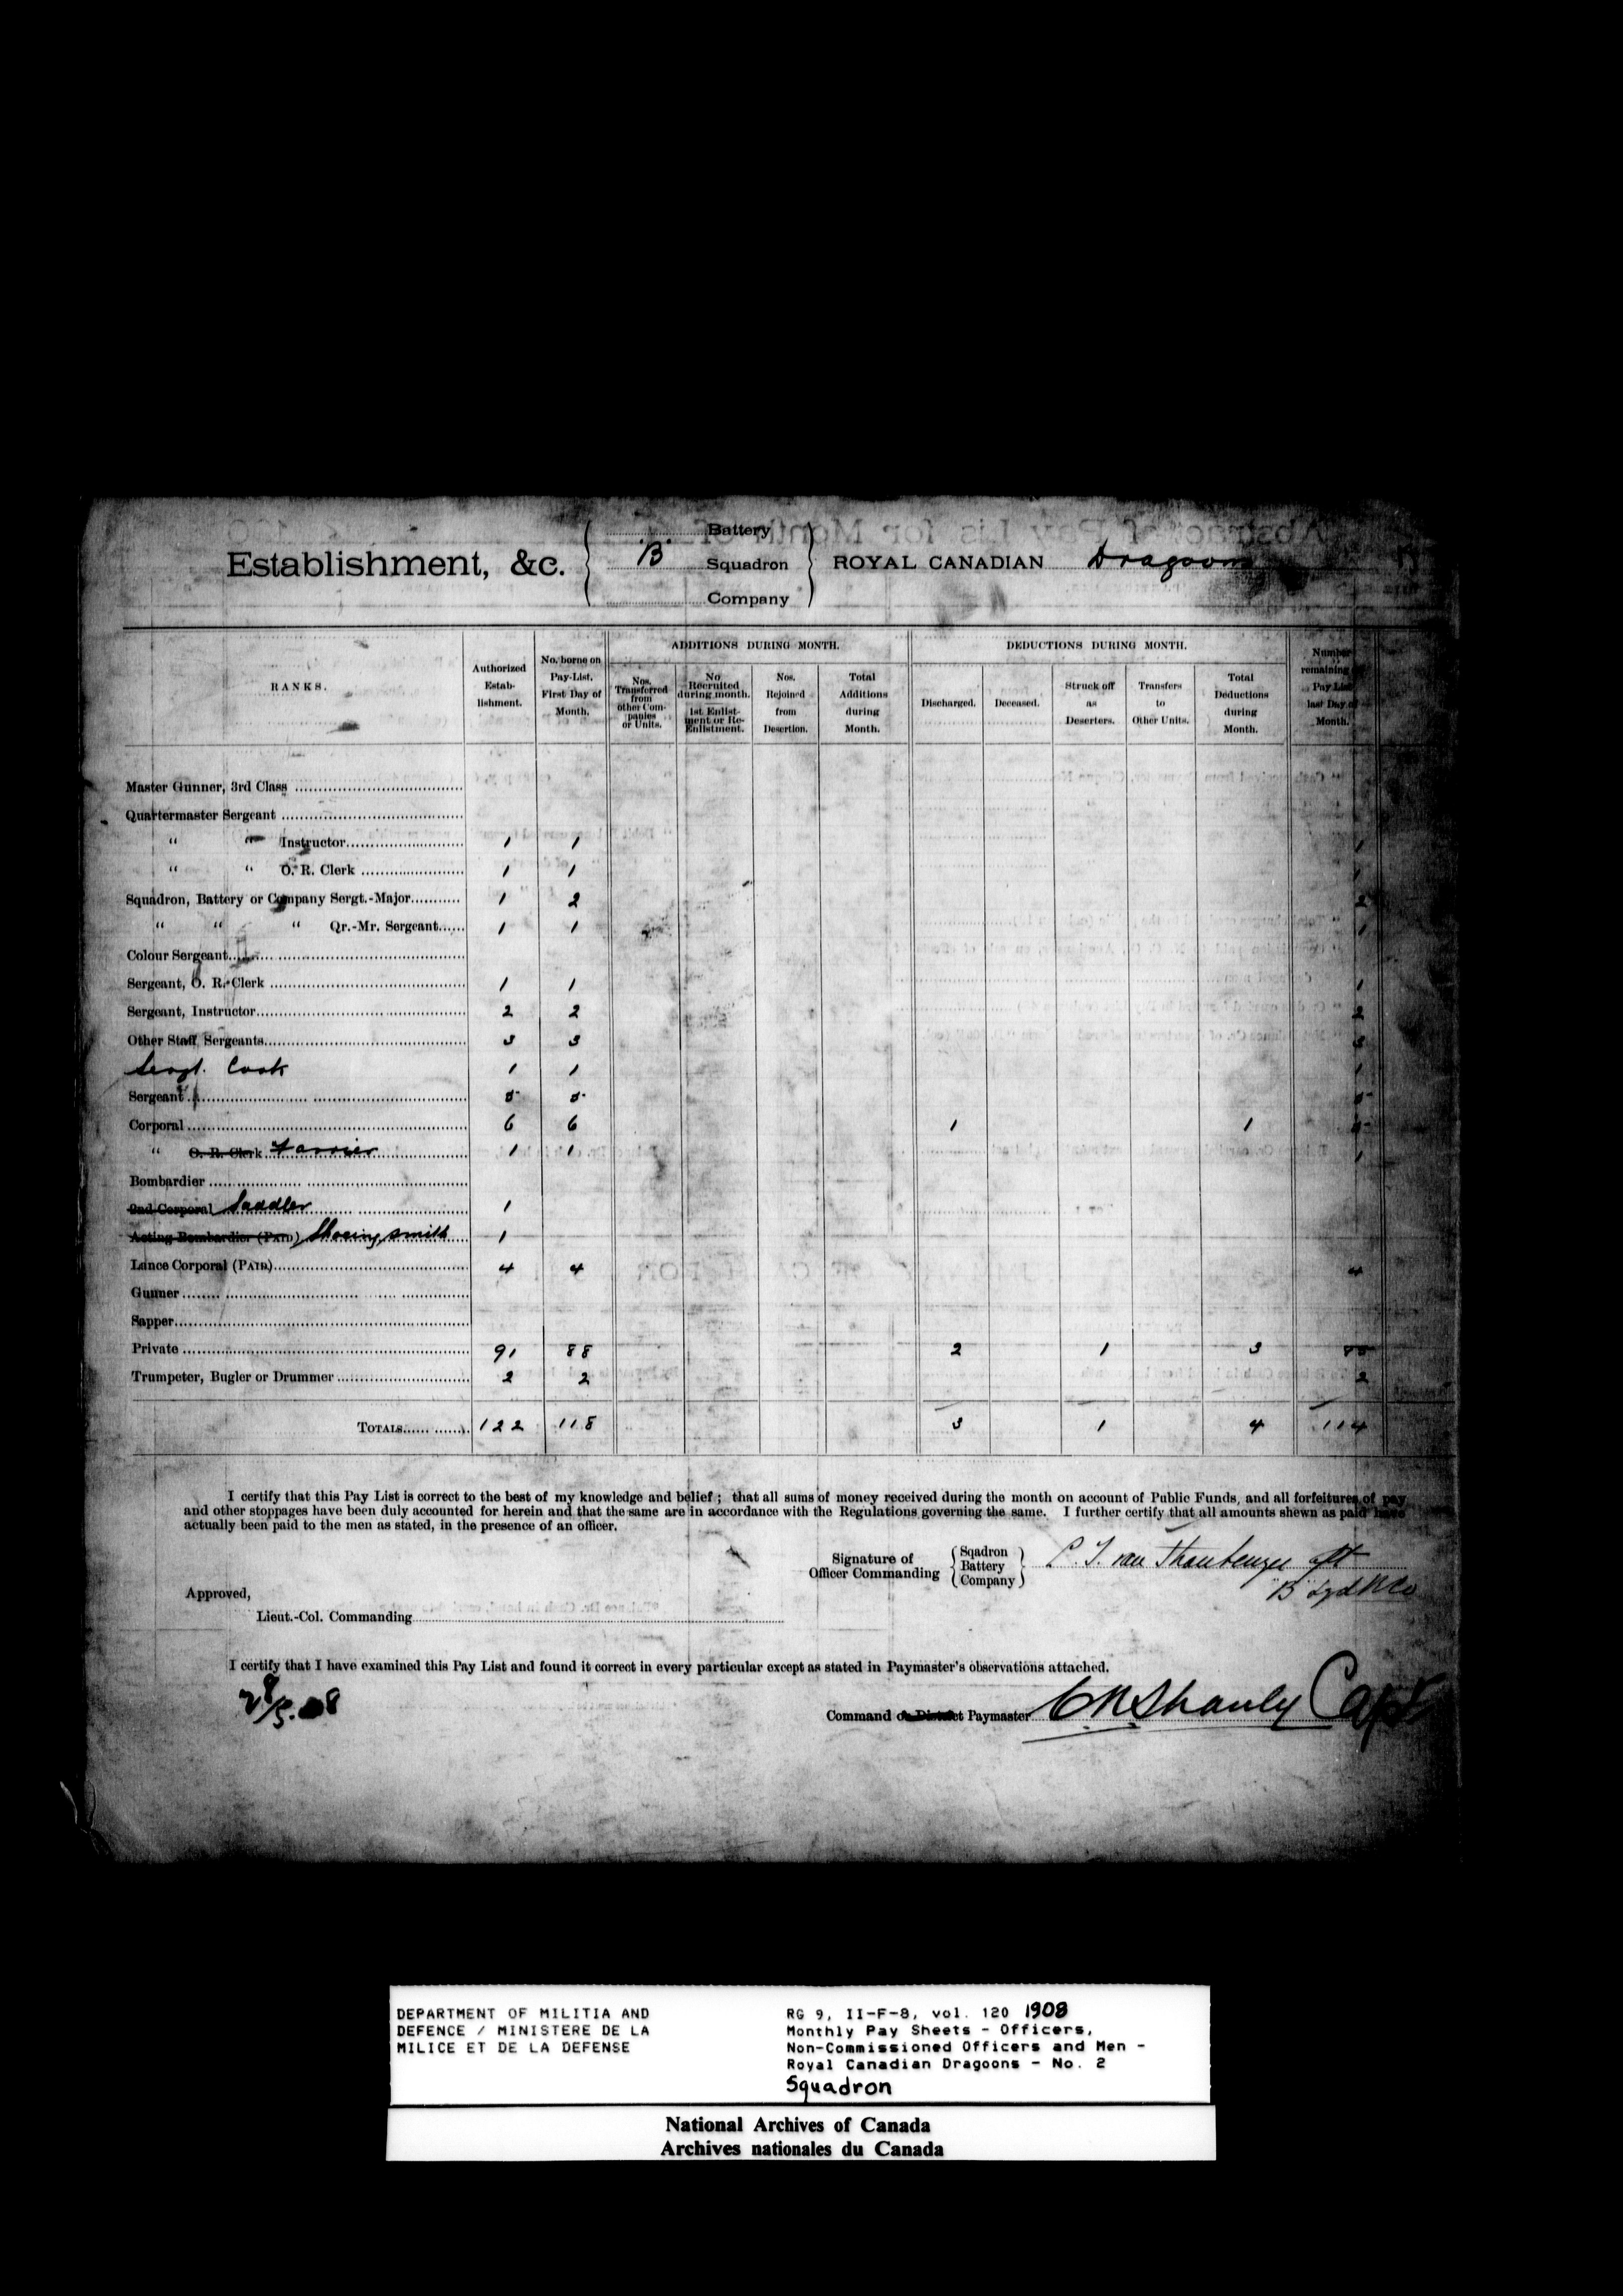 Establishment, &c. { Battery
"B" Squadron } ROYAL CANADIAN Dragoons
Company
RANKS. Authorized Establishment. No. borne on Pay-List, First Day of Month. ADDITIONS DURING MONTH. DEDUCTIONS DURING MONTH. Number remaining Pay List last Day of Month.
Nos. Transferred from other Companies or Units. No Recruited during month. 1st Enlistment or Re-Enlistment. Nos. Rejoined from Desertion. Total Additions during Month. Discharged. Deceased. Struck off as Deserters. Transfers to Other Units. Total Deductions during Month.
Master Gunner, 3rd Class
Quartermaster Sergeant
" " Instructor 1 1 1
" " O. R. Clerk 1 1 1
Squadron, Battery or Company Sergt.-Major 1 2 2
" " " Qr.-Mr. Sergeant 1 1 1
Colour Sergeant
Sergeant, O. R. Clerk 1 1 1
Sergeant, Instructor 2 2 2
Other Staff Sergeants 3 3 3
Sergt. Cook 1 1 1
Sergeant 5 5 5
Corporal 6 6 1 1 5
" O. R. Clerk Farrier 1 1 1
Bombardier
2nd Corporal Saddler 1
Acting Bombardier (PAID) Shoeing smith 1
Lance Corporal (PAID) 4 4 4
Gunner
Sapper
Private 91 88 2 1 3 85
Trumpeter, Bugler or Drummer 2 2 2
TOTALS 122 118 3 1 4 114
I certify that this Pay List is correct to the best of my knowledge and belief; that all sums of money received during the month on account of Public Funds, and all forfeitures of pay
and other stoppages have been duly accounted for herein and that the same are in accordance with the Regulations governing the same. I further certify that all amounts shewn as paid have
actually been paid to the men as stated, in the presence of an officer.
Signature of Officer Commanding { Sqadron
Battery
Company }
"B" Sqd RCD
Approved,
Lieut.-Col. Commanding
I certify that I have examined this Pay List and found it correct in every particular except as stated in Paymaster's observations attached.
Command or District Paymaster C N Shanly Capt
DEPARTMENT OF MILITIA AND
DEFENCE / MINISTERE DE LA
MILICE ET DE LA DEFENSE
RG 9, II-F-8, vol. 120 1908
Monthly Pay Sheets - Officers,
Non-Commissioned Officers and Men -
Royal Canadian Dragoons - No. 2
Squadron
National Archives of Canada
Archives nationales du Canada